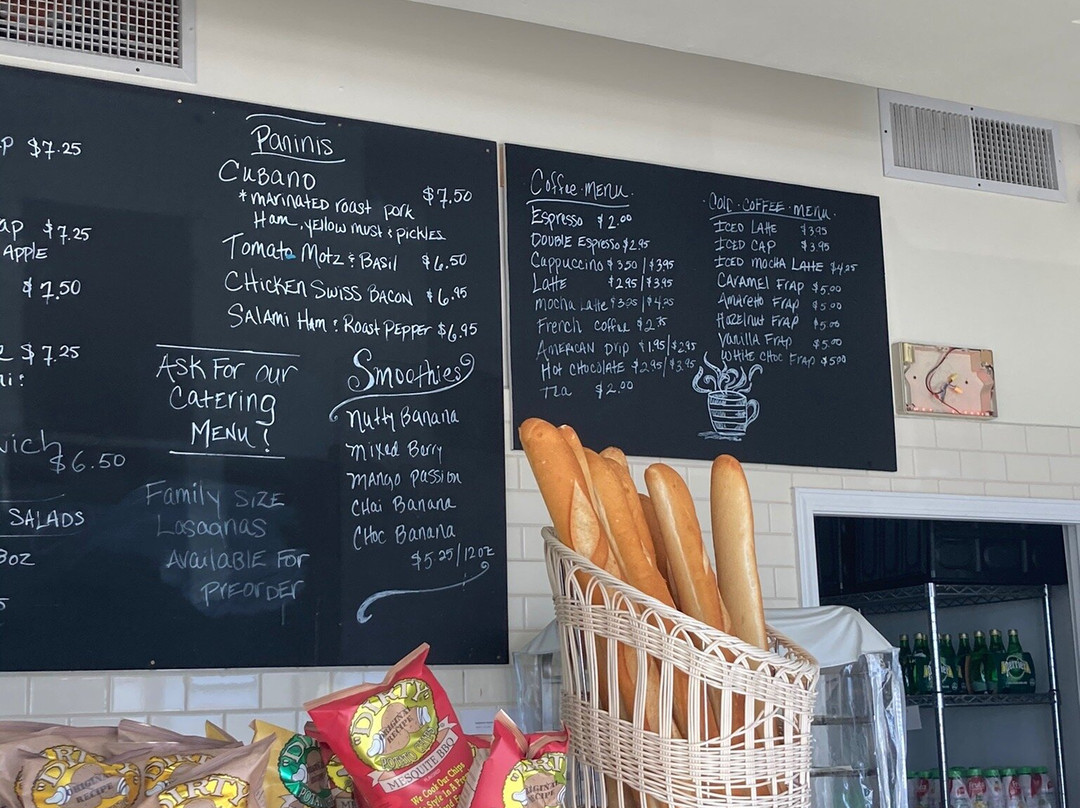 P $7.25
ap $7.25
APPLE
$7.50
$7.25
wich
$6.50
SALADS
8oz
Paninis
Cubano
* marinated roast pork $7.50
Ham, yellow must & pickles
Tomato Motz & Basil $6.50
Chicken Swiss Bacon $6.95
Salami Ham & Roast Pepper $6.95
Ask For our
Catering
Menu!
Family Size
Lasagnas
Available For
preorder
Smoothies
Nutty Banana
mixed Berry
mango passion
Chai Banana
Choc Banana
$5.25/12oz
Coffee menu.
Espresso $2.00
Double Espresso $2.95
Cappuccino $3.50/$3.95
Latte $2.95/$3.95
mocha Latte $3.25/$4.25
French coffee $2.75
American Drip $1.95/$2.95
Hot chocolate $2.95/$3.95
Tea $2.00
Cold Coffee menu.
Iced Latte $3.95
Iced Cap $3.95
Iced mocha Latte $4.25
Caramel Frap $5.00
Amaretto Frap $5.00
Hazelnut Frap $5.00
Vanilla Frap $5.00
White Choc Frap $5.00
"DIRTY"
POTATO CHIPS
ORIGINAL
RECIPE
MESQUITE BBQ
We Cook Our Chips
perrier